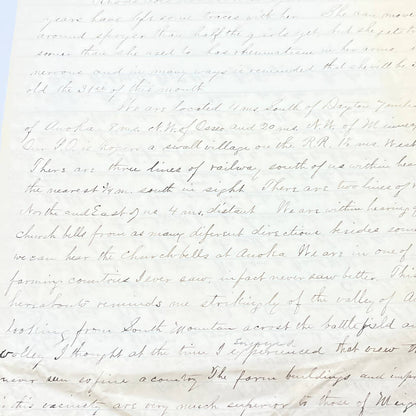 years have left some traces with her. She can move
around spryer than half the girls yet, but she gets to
some than she used to has rheumatism in her arms
nervous and in many ways is reminded that she will be
old the 31st of this month.
We are located 4 ms. South of Dayton
of Anoka, 8 ms. N.W. of Osseo and 20 ms. N.W. of
Our P.O. is a small village on the R.R. ms. West
There are three lines of railway south of us within hea
the nearest 1/4 m. south in sight. There are two lines
North and East of us 4 ms. distant. We are within hearing
church bells from as many diferent directions besides som
we can hear the Church bells at Anoka. We are in one of
farming countries I ever saw, in fact never saw better. Thi
hereabouts reminds me strikingly of the valley of
looking from South Mountain across the battlefield
valley I thought at the time I enjoyed that view
never seen so fine a country. The farm buildings, and imp
in this vacinity are very much superior to those of